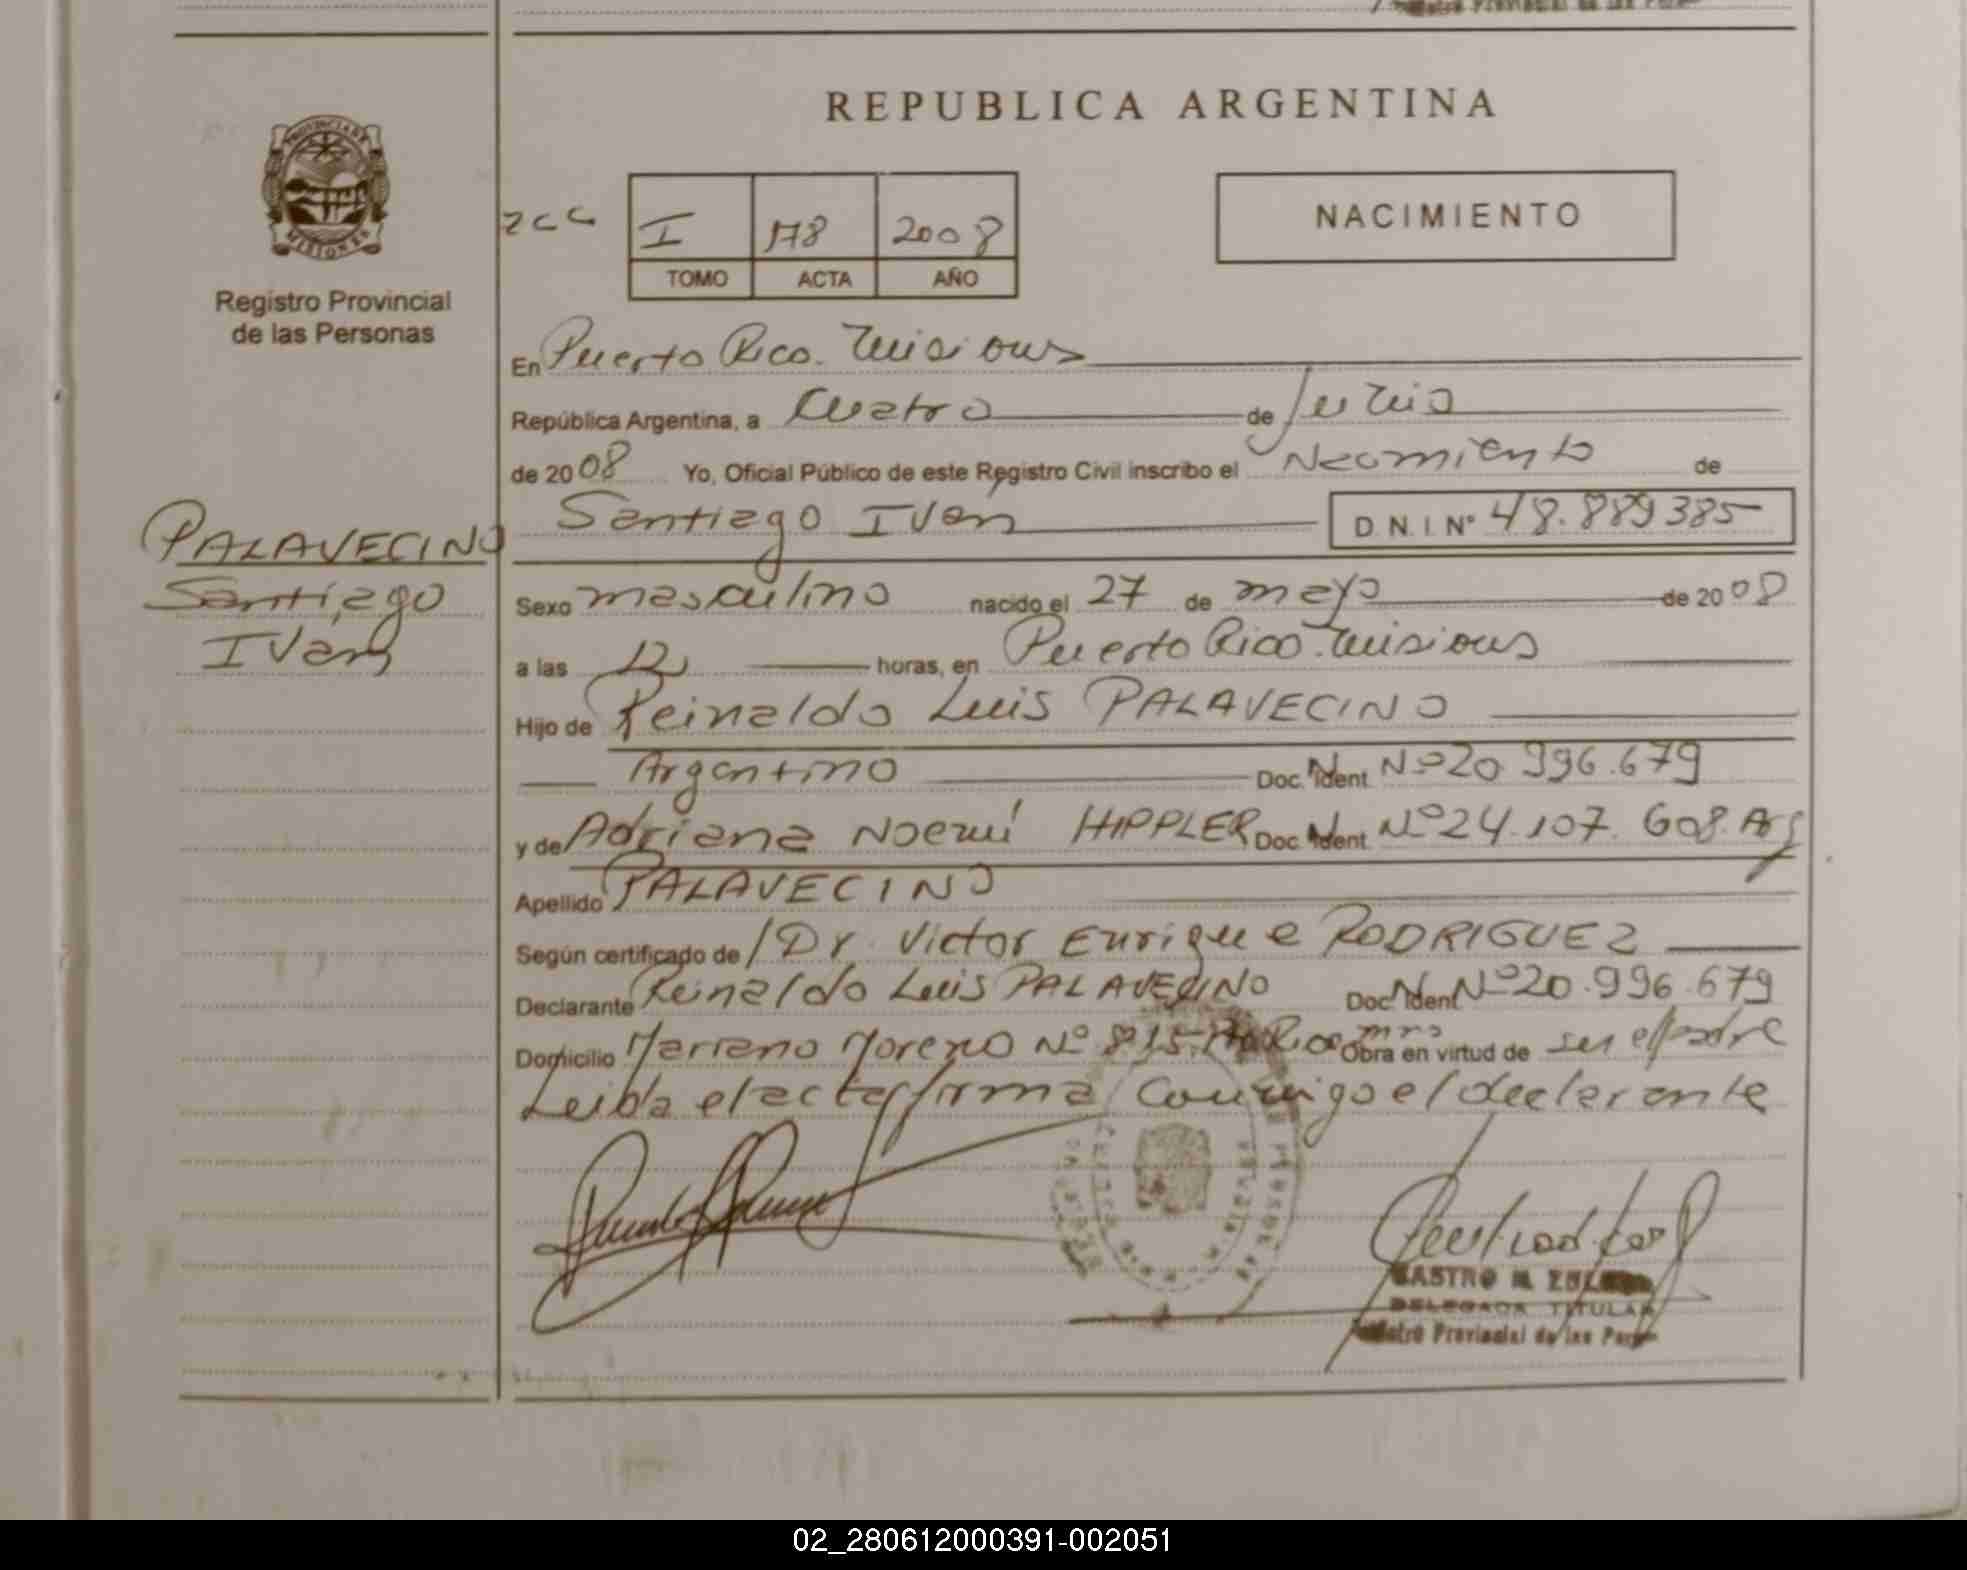 REPUBLICA ARGENTINA
PROVINCIA DE
MISIONES
Registro Provincial
de las Personas
I 178 2008
TOMO ACTA AÑO
NACIMIENTO
En Puerto Rico. Misiones
República Argentina, a Cuatro de Junio
de 2008 Yo, Oficial Público de este Registro Civil inscribo el Nacimiento de
Santiago Ivan D.N.I. Nº 48.889385
PALAVECINO
Santiago
Ivan
Sexo masculino nacido el 27 de mayo de 2008
a las 12 horas, en Puerto Rico. Misiones
Hijo de Reinaldo Luis PALAVECINO
Argentino Doc. Ident. Nº 20.996.679
y de Adriana Noemí HIPPLER Doc. Ident. Nº 24.107.608. Arg
Apellido PALAVECINO
Según certificado de Dr. Victor Enrique RODRIGUEZ
Declarante Reinaldo Luis PALAVECINO Doc. Ident. Nº 20.996.679
Domicilio Mariano Moreno Nº 815. Pto Rico mnes Obra en virtud de ser el padre
Leida el acta firma conmigo el declarante
CASTRO M.
DELEGADA TITULAR
Registro Provincial de las Pers
02_280612000391-002051